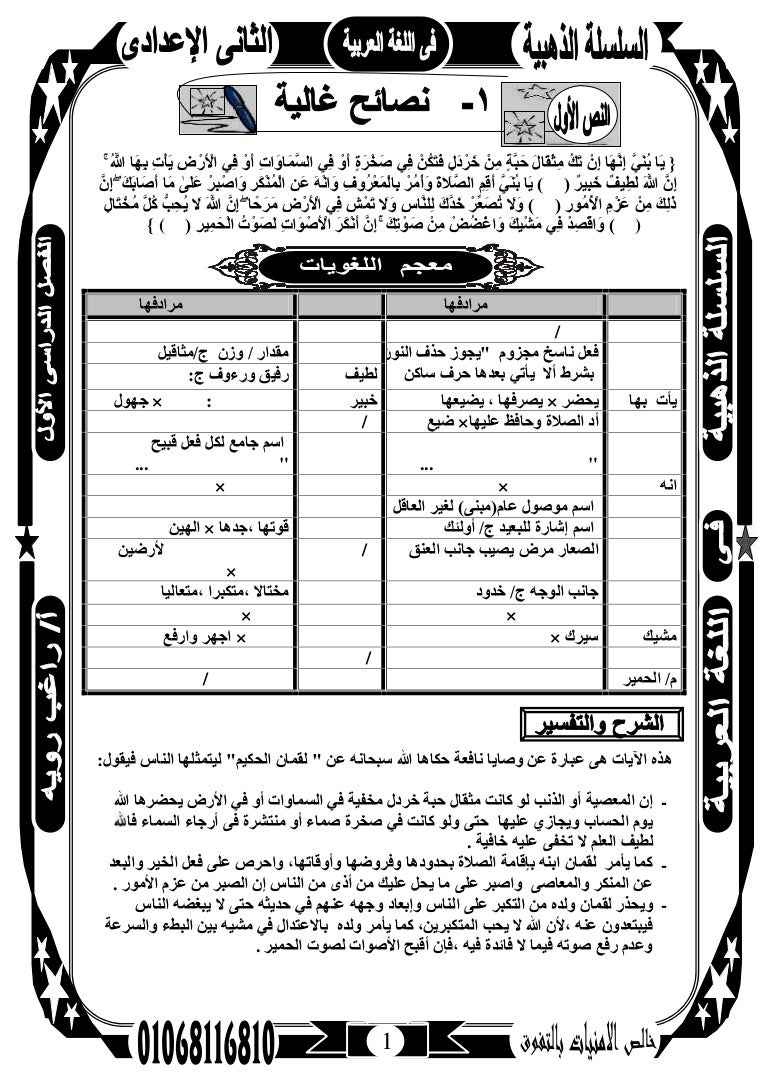 السلسلة الذهبية
فى اللغة العربية
الثانى الإعدادى
النص الأول
١- نصائح غالية
{ يَا بُنَيَّ إِنَّهَا إِنْ تَكُ مِثْقَالَ حَبَّةٍ مِنْ خَرْدَلٍ فَتَكُنْ فِي صَخْرَةٍ أَوْ فِي السَّمَاوَاتِ أَوْ فِي الْأَرْضِ يَأْتِ بِهَا اللَّهُ ۚ
إِنَّ اللَّهَ لَطِيفٌ خَبِيرٌ ( ) يَا بُنَيَّ أَقِمِ الصَّلَاةَ وَأْمُرْ بِالْمَعْرُوفِ وَانْهَ عَنِ الْمُنْكَرِ وَاصْبِرْ عَلَىٰ مَا أَصَابَكَ ۖ إِنَّ
ذَٰلِكَ مِنْ عَزْمِ الْأُمُورِ ( ) وَلَا تُصَعِّرْ خَدَّكَ لِلنَّاسِ وَلَا تَمْشِ فِي الْأَرْضِ مَرَحًا ۖ إِنَّ اللَّهَ لَا يُحِبُّ كُلَّ مُخْتَالٍ
( ) وَاقْصِدْ فِي مَشْيِكَ وَاغْضُضْ مِنْ صَوْتِكَ ۚ إِنَّ أَنْكَرَ الْأَصْوَاتِ لَصَوْتُ الْحَمِيرِ ( ) }
معجم اللغويات
مرادفها مرادفها
/
فعل ناسخ مجزوم "يجوز حذف النون مقدار / وزن ج/مثاقيل
بشرط ألا يأتي بعدها حرف ساكن لطيف رفيق ورءوف ج:
يأت بها يحضر × يصرفها ، يضيعها خبير : × جهول
أد الصلاة وحافظ عليها× ضيع /
اسم جامع لكل فعل قبيح
" ... " ...
انه × ×
اسم موصول عام(مبنى) لغير العاقل
اسم إشارة للبعيد ج/ أولئك قوتها ،جدها × الهين
الصعار مرض يصيب جانب العنق / لأرضين
×
جانب الوجه ج/ خدود مختالا ،متكبرا ،متعاليا
× ×
مشيك سيرك × × اجهر وارفع
/
م/ الحمير /
الشرح والتفسير
هذه الآيات هى عبارة عن وصايا نافعة حكاها الله سبحانه عن " لقمان الحكيم" ليتمثلها الناس فيقول:
- إن المعصية أو الذنب لو كانت مثقال حبة خردل مخفية في السماوات أو في الأرض يحضرها الله
يوم الحساب ويجازي عليها حتى ولو كانت في صخرة صماء أو منتشرة فى أرجاء السماء فالله
لطيف العلم لا تخفى عليه خافية .
- كما يأمر لقمان ابنه بإقامة الصلاة بحدودها وفروضها وأوقاتها، واحرص على فعل الخير والبعد
عن المنكر والمعاصى واصبر على ما يحل عليك من أذى من الناس إن الصبر من عزم الأمور .
- ويحذر لقمان ولده من التكبر على الناس وإبعاد وجهه عنهم في حديثه حتى لا يبغضه الناس
فيبتعدون عنه ،لأن الله لا يحب المتكبرين، كما يأمر ولده بالاعتدال في مشيه بين البطء والسرعة
وعدم رفع صوته فيما لا فائدة فيه ،فإن أقبح الأصوات لصوت الحمير .
السلسلة الذهبية
فى
اللغة العربية
الفصل الدراسى الأول
أ/ راغب رويه
خالص الامنيات بالتفوق
1
01068116810